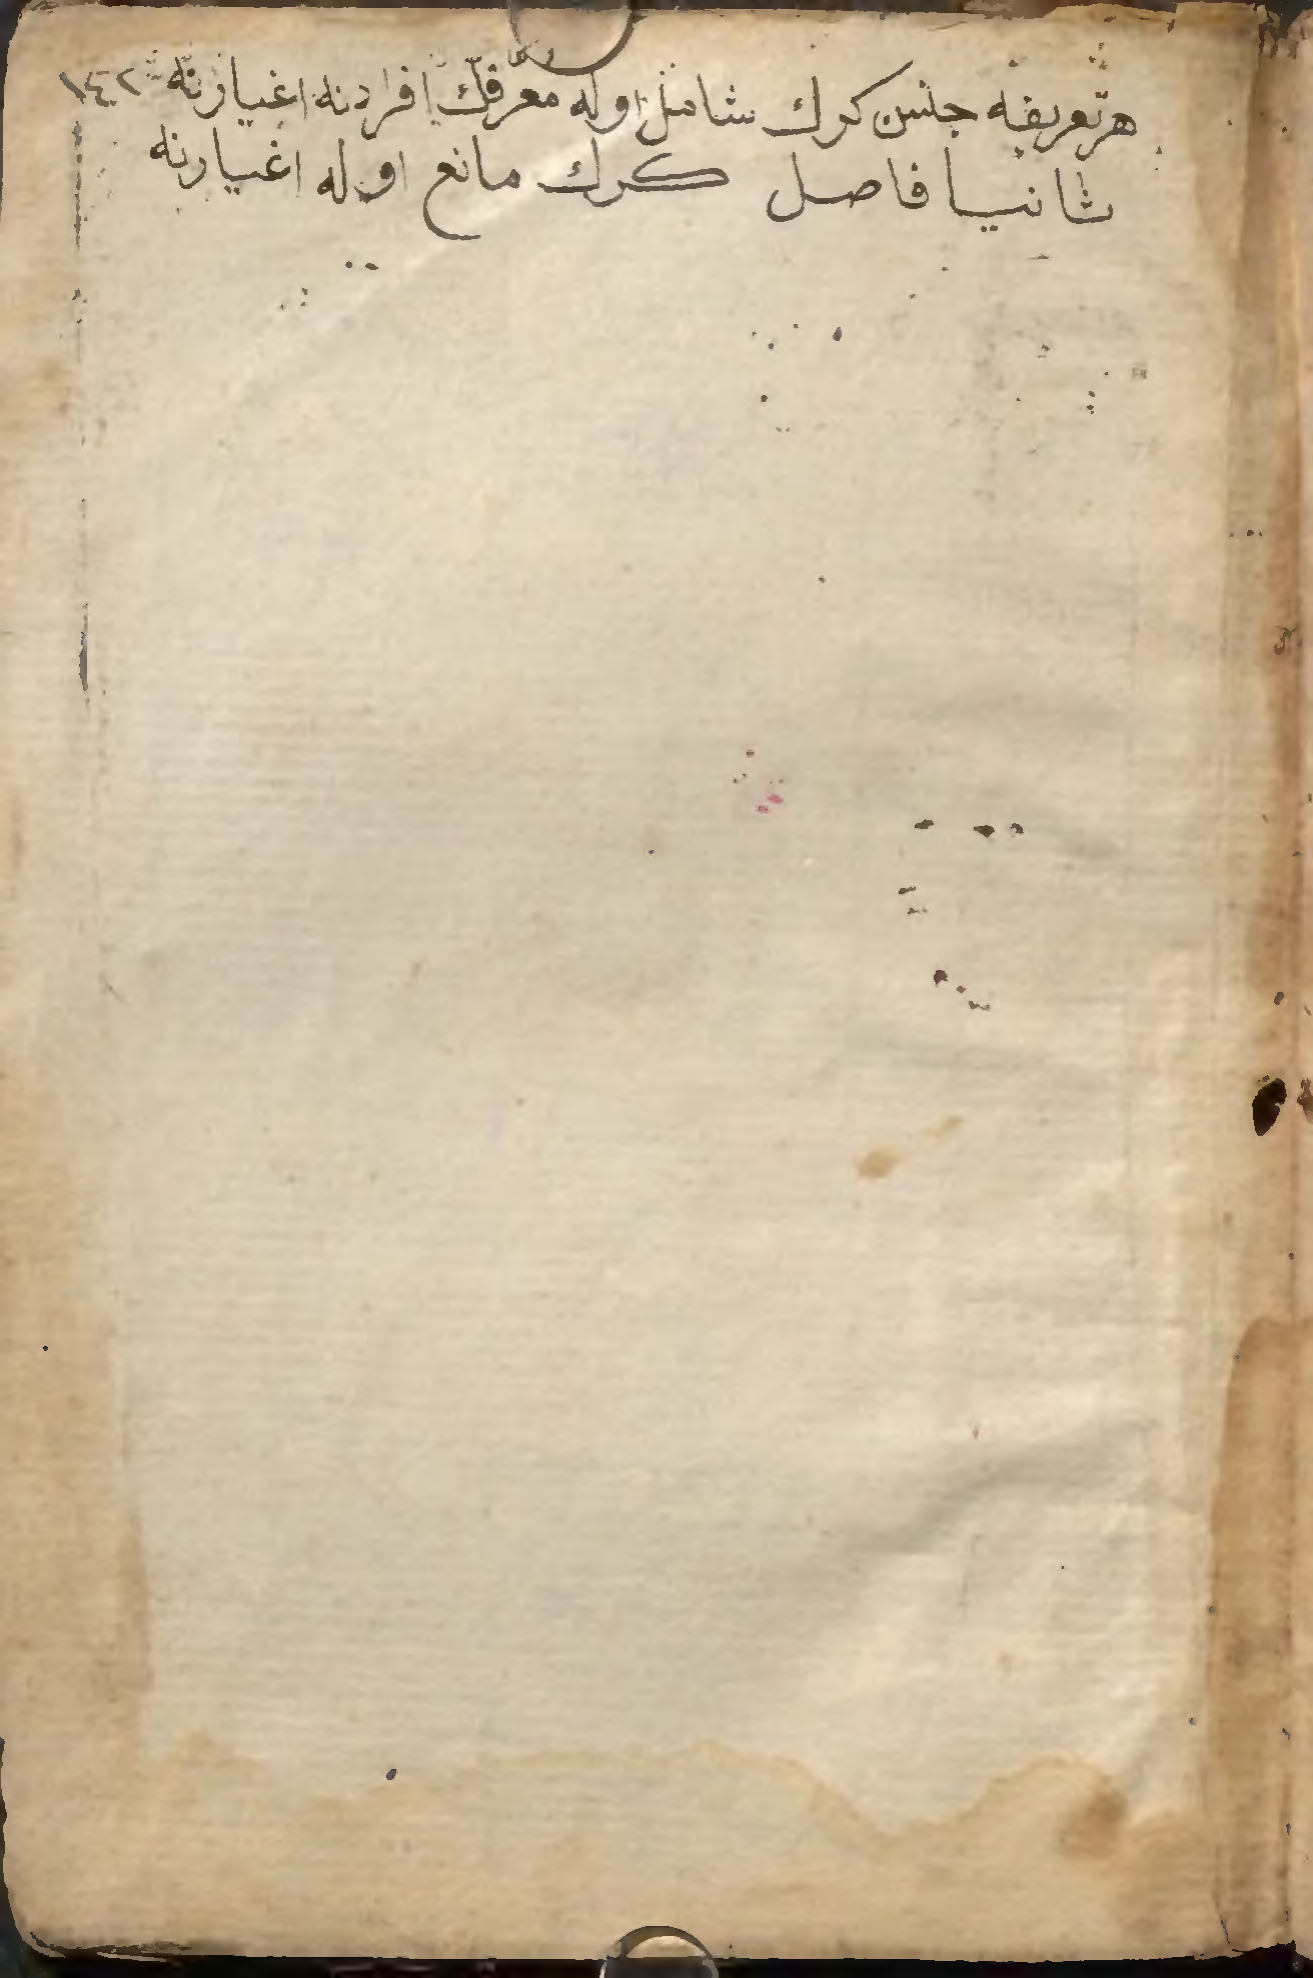 هر تعريفه جنس كرك شامل اوله معرّفك افرادنه اغيارنه ١٤٢
ثانيا فاصل كرك مانع اوله اغيارنه